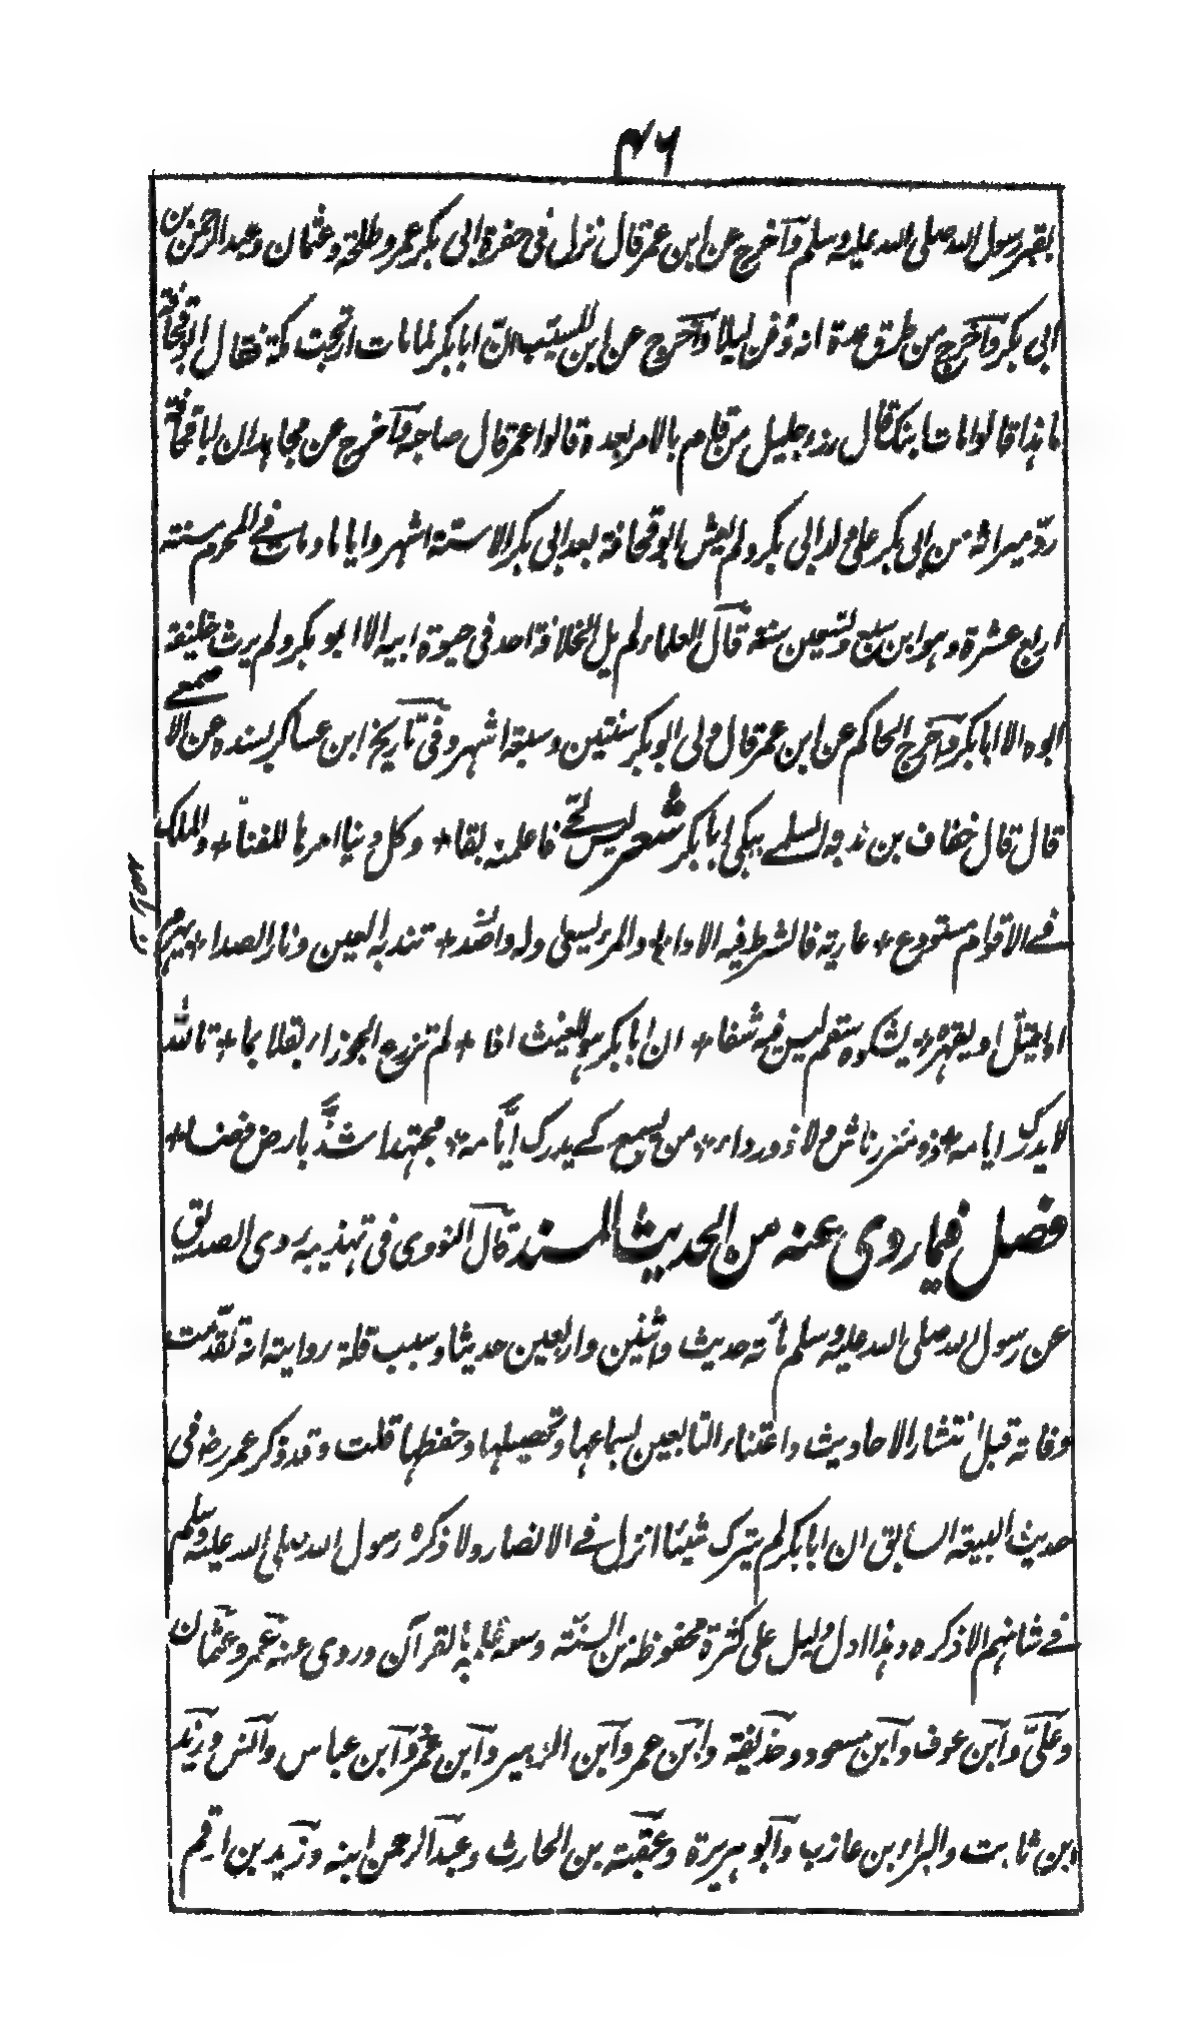 ٤٦
بقبر رسول الله صلى الله عليه وسلم وآخرج عن ابن عمر قال نزل فى حفرة ابى بكر عمر وطلحة وعثمان وعبد الرحمن بن
ابى بكر وآخرج من طرق عدة انه دُفن ليلا وآخرج عن ابن المسيّب انّ ابا بكر لما مات ارتجت مكة فقال ابو قحافة
ما هذا قالوا مات ابنك قال رزء جليل من قام بالامر بعده قالوا عمر قال صاحبه وآخرج عن مجاهد ان ابا قحافة
ردّ ميراثه من ابى بكر على ولد ابى بكر ولم يعش ابو قحافة بعد ابى بكر الا ستة اشهر واياما ومات فے المحرم سنته
اربع عشرة وهو ابن سبع وتسعين سنة قآل العلماء لم يل الخلافة احد فى حيوة ابيه الا ابو بكر ولم يرث خليفة
ابوه الا ابا بكر وآخرج الحاكم عن ابن عمر قال ولى ابو بكر سنتين وسبعة اشهر وفى تآريخ ابن عساكر بسنده عن الاصمعے
قال قال خفاف بن ندبة السلمے يبكى ابا بكر شعر ليس لحّے فاعلمنه بقا + وكل دنيا امرها للفنا + والملك
فے الاقوام مستودع + عارية فالشرط فيه الادا + والمرء يسعى وله واصد + تندبه العين ونار الصدا + يهرم
او يقتل او يقهره + يشكوه سقم ليس فيه شفا + ان ابا بكر هو الغيث اذا + لم تزرع الجوزاء بقلا بما + تالله
لا يدرك ايامه + ذو مئزر ناش ولا ذو رداء + من يسع كے يدرك ايّامه + مجتهدا شذّ بارض فضا +
فصل فيما روى عنه من الحديث المسند قآل النووى فى تهذيبه روى الصديق
عن رسول الله صلى الله عليه وسلم مأته حديث واثنين واربعين حديثا وسبب قلة روايته انه تقدّمت
وفاته قبل انتشار الاحاديث واعتناء التابعين بسماعها وتحصيلها وحفظها قلت وقد ذكر عمر رض فى
حديث البيعة السابق ان ابا بكر لم يترك شيئا انزل فے الانصار ولا ذكره رسول الله صلى الله عليه وسلم
فے شانهم الا ذكره وهذا ادل دليل على كثرة محفوظه من السنّة وسعة علمه بالقرآن وروى عنه عمر وعثمان
وعلىّ وآبن عوف وآبن مسعود وحذيفة وآبن عمر وآبن الزبير وآبن عمرو وآبن عباس وآنس وزيد
بن ثابت والبراء بن عازب وآبو هريرة وعقبة بن الحارث وعبد الرحمن ابنه وزيد بن ارقم